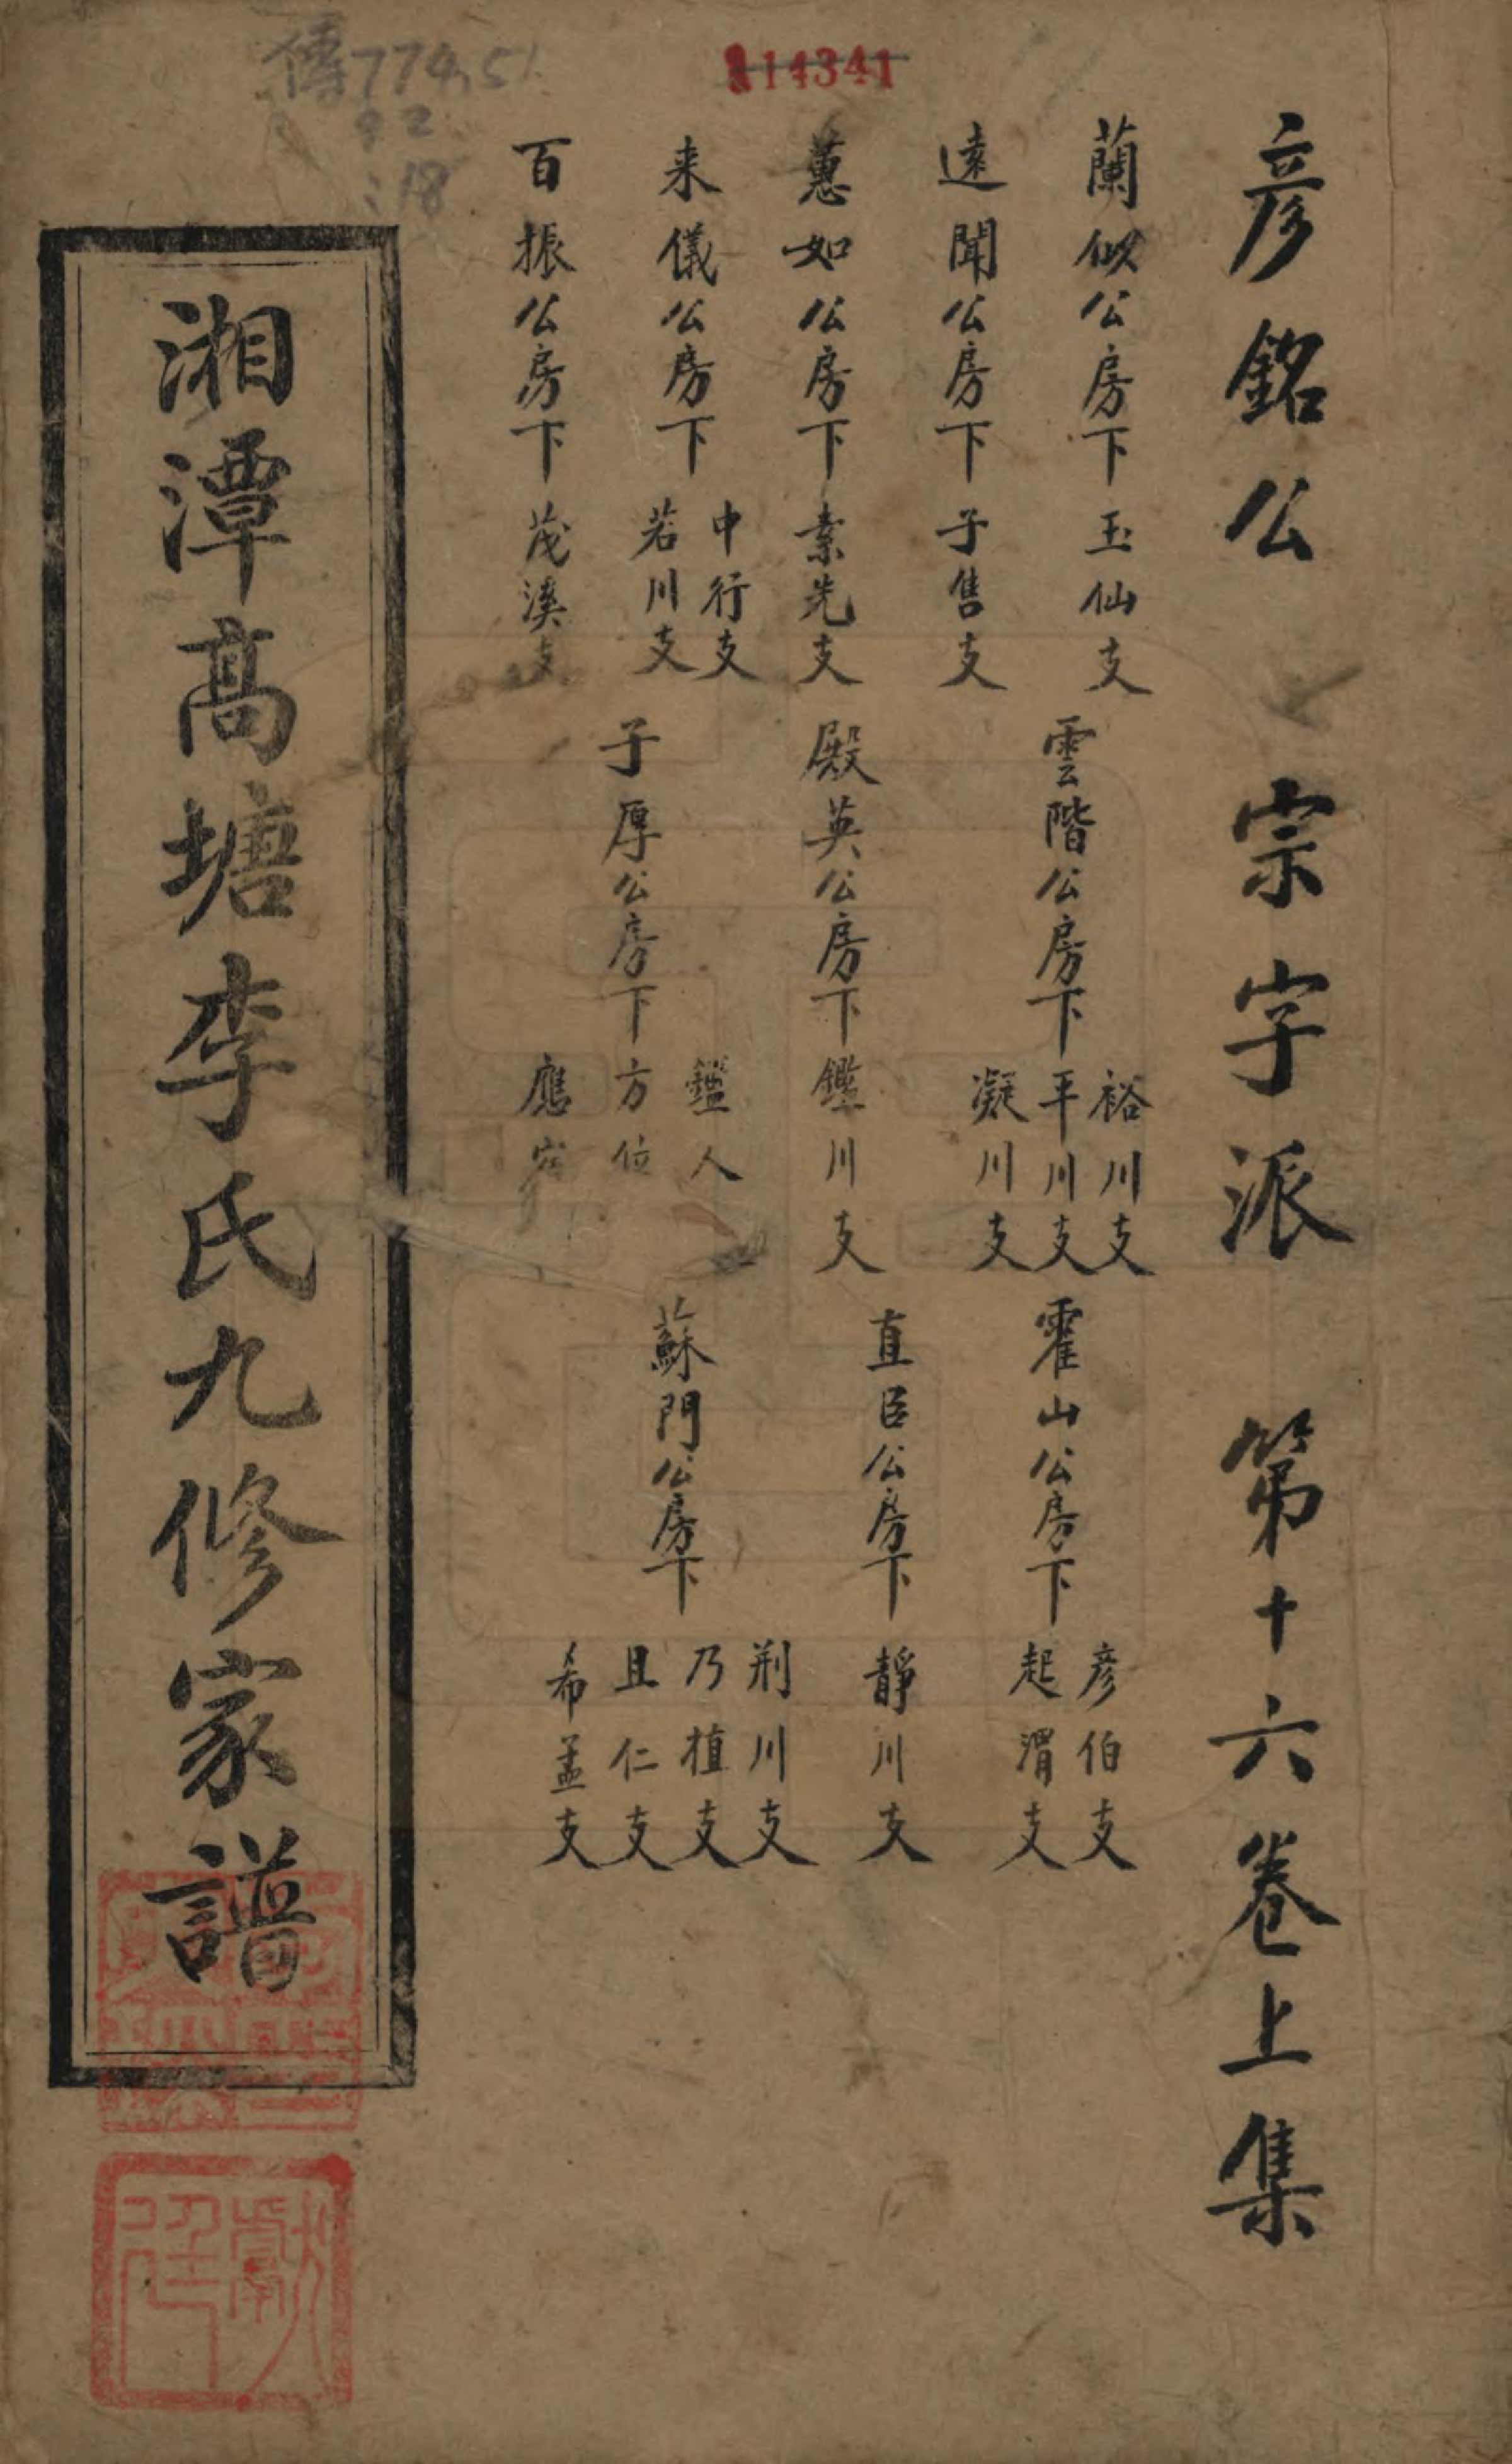 彥銘公 宗字派 第十六卷上集
蘭似公房下 玉仙支
遠聞公房下 子售支
蕙如公房下 素先支
来儀公房下 中行支 若川支
百振公房下 茂溪支
雲階公房下 裕川支 平川支 凝川支
殿英公房下 鑑川支
子厚公房下 鑑人 方位 應
霍山公房下 彥伯支 起渭支
直臣公房下 靜川支
蘇門公房下 荆川支 乃植支 且仁支 希孟支
湘潭高塘李氏九修家譜
14341
傳774.51
92
:18